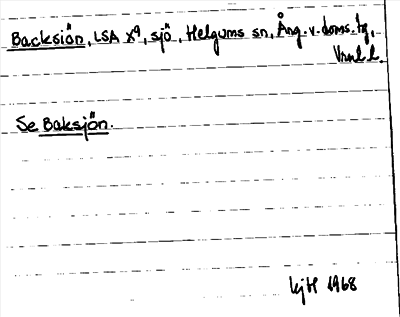 Backsiön, LSA X9, sjö, Helgums sn, Ång. v. doms. tg,
Vnl l.
Se Baksjön.
1968